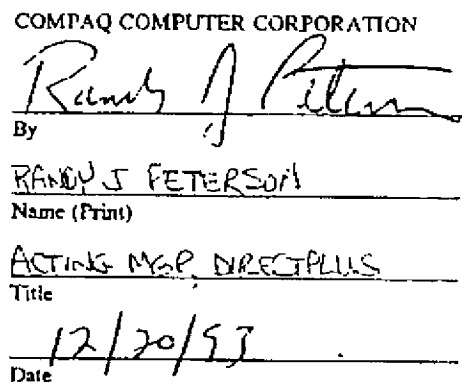 COMPAQ COMPUTER CORPORATION
Randy J Peterson
By
RANDY J PETERSON
Name (Print)
ACTING MGR, DIRECTPLUS
Title
12/20/93
Date